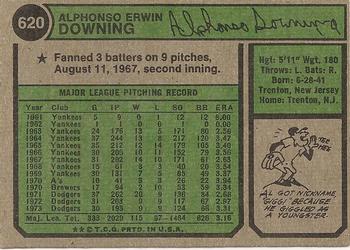 620
ALPHONSO ERWIN
DOWNING
Alphonso Downing
★ Fanned 3 batters on 9 pitches, August 11, 1967, second inning.
Hgt: 5'11" Wgt. 180
Throws: L. Bats: R.
Born: 6-28-41
Trenton, New Jersey
Home: Trenton, N.J.
MAJOR LEAGUE PITCHING RECORD
Year Club G IP W L SO BB ERA
1961 Yankees 5 9 0 1 12 12 8.00
1962 Yankees 1 1 0 0 1 0 0.00
1963 Yankees 24 176 13 5 171 80 2.56
1964 Yankees 37 244 13 8 217 120 3.47
1965 Yankees 35 212 12 14 179 105 3.40
1966 Yankees 30 200 10 11 152 79 3.56
1967 Yankees 31 202 14 10 171 61 2.63
1968 Yankees 15 61 3 3 40 20 3.52
1969 Yankees 30 131 7 5 85 49 3.38
1970 A's 10 41 3 3 26 22 3.95
1970 Brewers 17 94 2 10 53 59 3.34
1971 Dodgers 37 262 20 9 136 84 2.68
1972 Dodgers 31 203 9 9 117 67 2.98
1973 Dodgers 30 193 9 9 124 68 3.31
Maj. Lea. Tot. 333 2029 115 97 1484 826 3.16
★★ © T.C.G. PRTD. IN U.S.A.
TEE HEE
AL GOT NICKNAME,
"GIGGI" BECAUSE
HE GIGGLED AS
A YOUNGSTER.